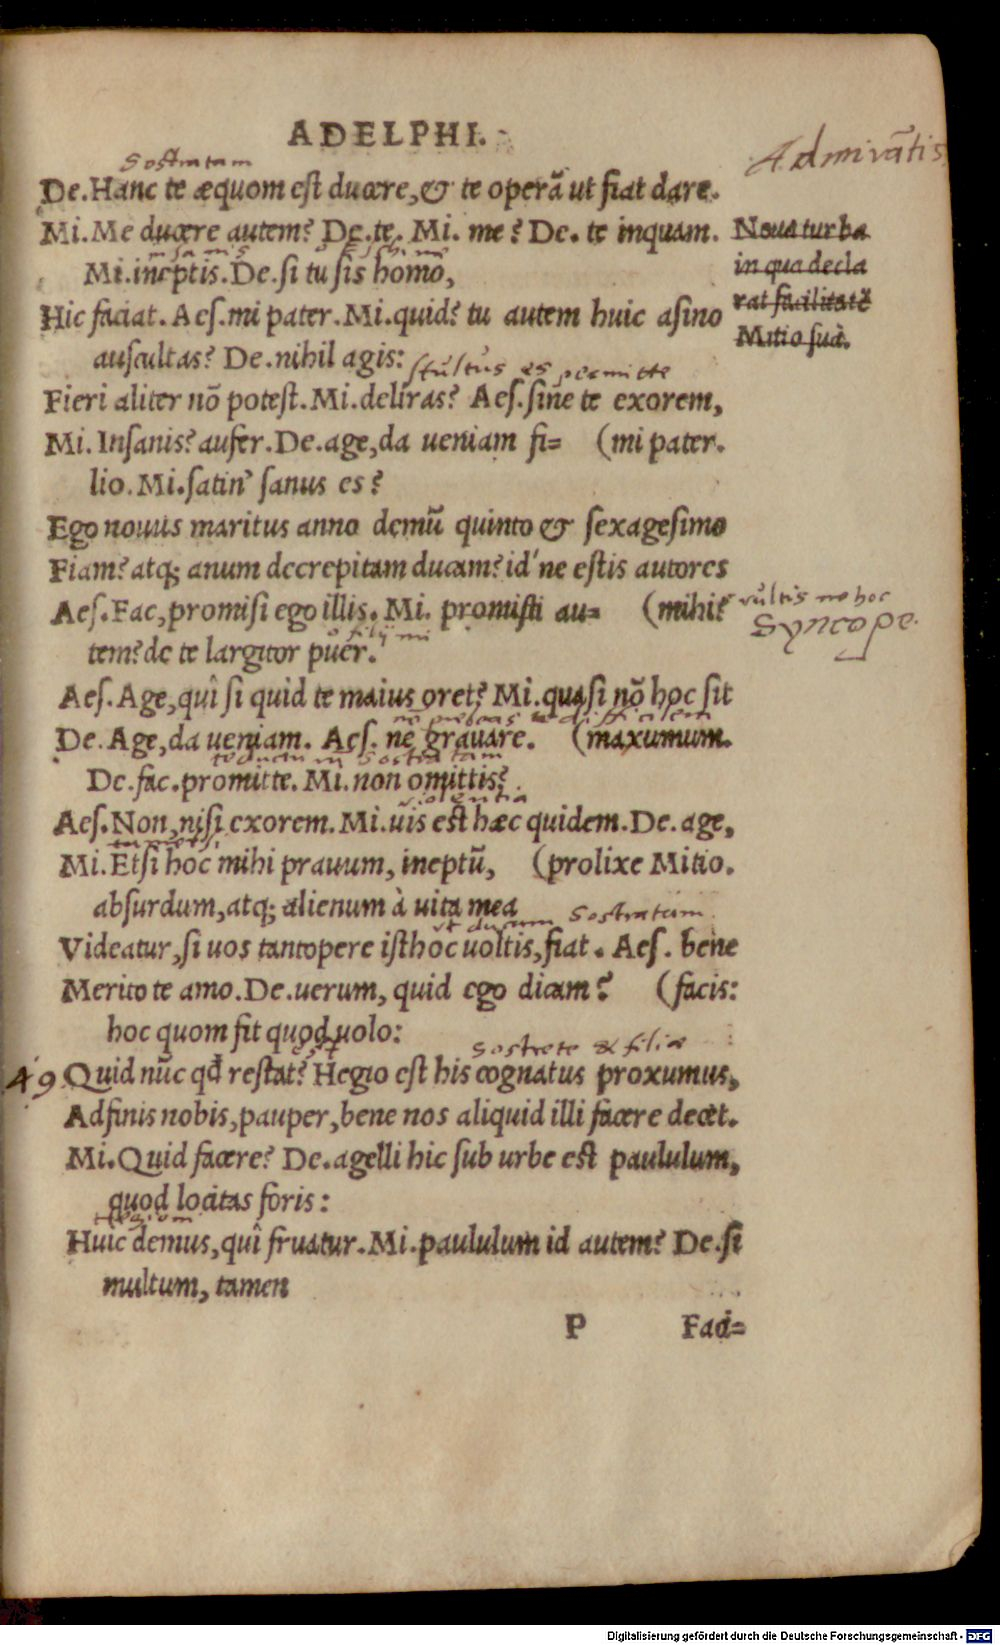 ADELPHI.
Admirãtis
Sostratam
De. Hanc te æquom eſt ducere, & te operã ut fiat dare.
Mi. Me ducere autem? De. te. Mi. me? De. te inquam.
Noua turba
in qua decla
rat facilitatẽ
Mitio ſuã.
insanis
Mi. ineptis. De. ſi tu ſis homo,
Hic faciat. Aeſ. mi pater. Mi. quid? tu autem huic aſino
auſcultas? De. nihil agis:
stultus es permitte
Fieri aliter nõ poteſt. Mi. deliras? Aeſ. ſine te exorem,
Mi. Inſanis? aufer. De. age, da ueniam fi= (mi pater.
lio. Mi. ſatin' ſanus es?
Ego nouus maritus anno demũ quinto & ſexageſimo
Fiam? atq; anum decrepitam ducam? id'ne eſtis autores
Aeſ. Fac, promiſi ego illis. Mi. promiſti au= (mihi?
vultis no hoc
Syncope.
o filij mi
tem? de te largitor puer.
Aeſ. Age, quî ſi quid te maius oret? Mi. quaſi nõ hoc ſit
difficilem
De. Age, da ueniam. Aeſ. ne grauare. (maxumum.
Sostratam
De. fac. promitte. Mi. non omittis?
violentia
Aeſ. Non, niſi exorem. Mi. uis eſt hæc quidem. De. age,
Mi. Etſi hoc mihi prauum, ineptũ, (prolixe Mitio.
abſurdum, atq; alienum à uita mea
vt ducam Sostratam
Videatur, ſi uos tantopere iſthoc uoltis, fiat. Aeſ. bene
Merito te amo. De. uerum, quid ego dicam? (facis:
hoc quom fit quod uolo:
est Sostrete & filiæ
49 Quid nũc qđ reſtat? Hegio eſt his cognatus proxumus,
Adfinis nobis, pauper, bene nos aliquid illi facere decet.
Mi. Quid facere? De. agelli hic ſub urbe eſt paululum,
quod locitas foris:
Hegiom
Huic demus, quî fruatur. Mi. paululum id autem? De. ſi
multum, tamen
P Faci=
Digitalisierung gefördert durch die Deutsche Forschungsgemeinschaft - DFG